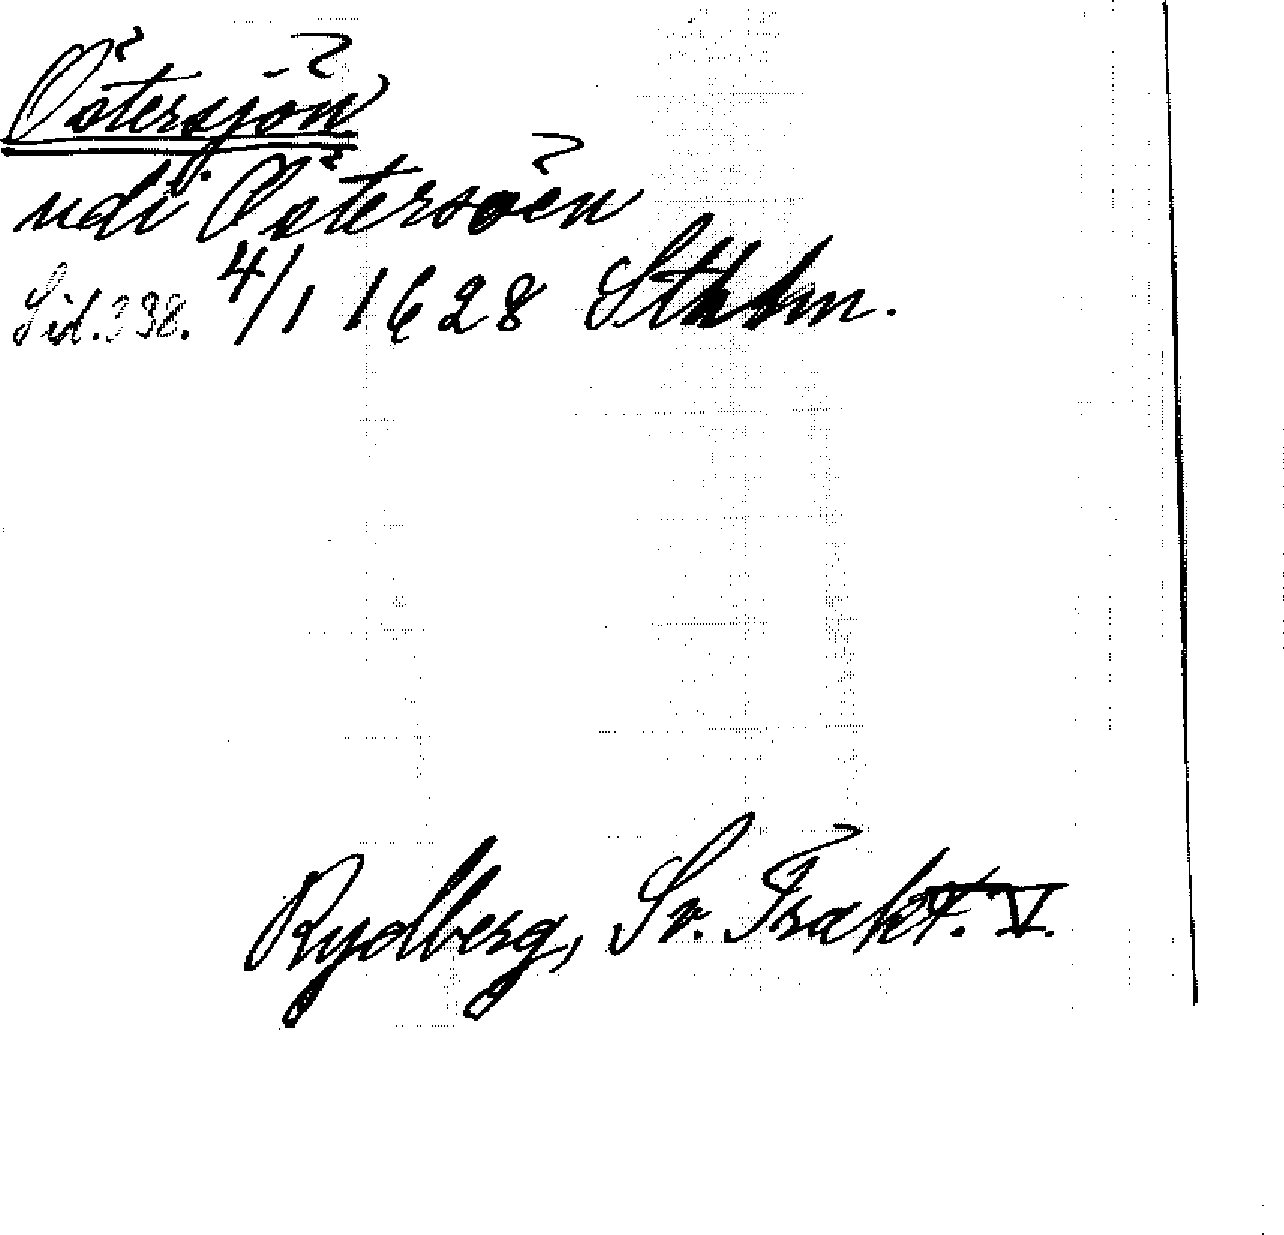 Östersjön
udi Östersöen
Sid. 338. 4/1 1628 Sthlm.
Rydberg, Sv. Trakt. V.